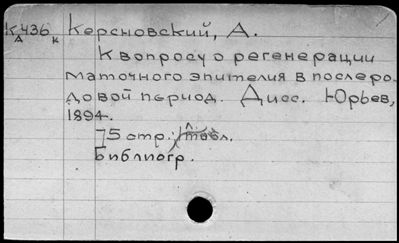 К 436 к Керсновский, А.
Д
К вопросу о регенерации
маточного эпителия в послеро-
довой период. Дисс. Юрьев,
1894.
75 стр.; 1 л. табл.
Библиогр.